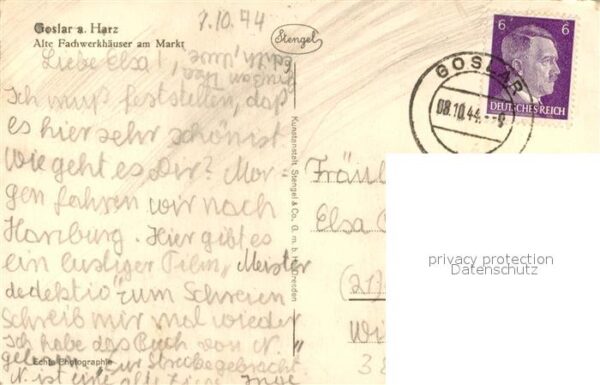 Goslar a. Harz
Alte Fachwerkhäuser am Markt
7.10.44
Stengel
6 6
DEUTSCHES REICH
GOSLAR
08.10.44
Liebe Elsa!
Ich muß feststellen, daß
es hier sehr schön ist
Wie geht es Dir? Mor-
gen fahren wir nach
Harzburg. Hier gibt es
ein lustiger Film, „Meister
dedektiv“ zum Schreien
Schreib mir mal wieder
Ich habe das Buch von N.
zur Strecke gebracht.
N. ist eine alte Ziege. Inge
Echte Photographie
Kunstanstalt Stengel & Co. G. m. b. H. Dresden
Fräul
Elsa
(21
Wi
38
privacy protection
Datenschutz